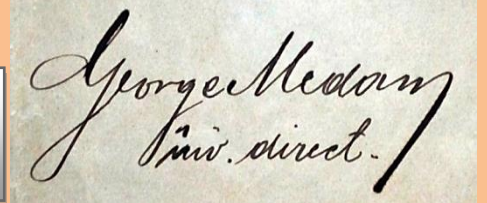 George Medan
înv. direct.